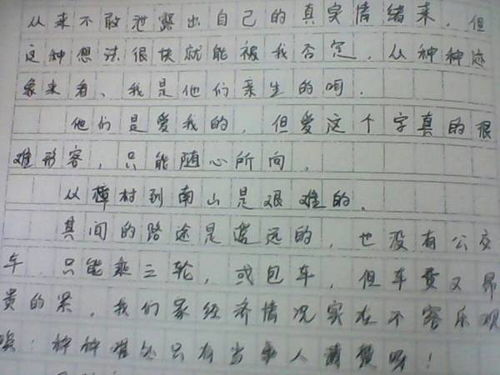 从来不敢泄露出自己的真实情绪来，但
这种想法很快就能被我否定，从种种迹
象来看、我是他们亲生的啊．
他们是爱我的，但爱这个字真的很
难形容，只能随心所向．
从樟村到南山是艰难的．
其间的路途是遥远的，也没有公交
车 只能乘三轮，或包车，但车费又昂
贵的累，我们家经济情况实在不容乐观
种种难处只有当事人 啊！